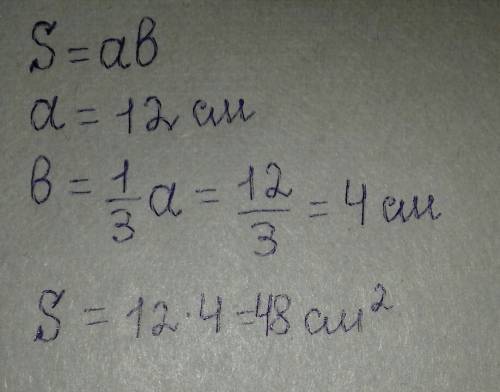 S = ab
a = 12 см
b = 1/3 a = 12/3 = 4 см
S = 12 · 4 = 48 см²